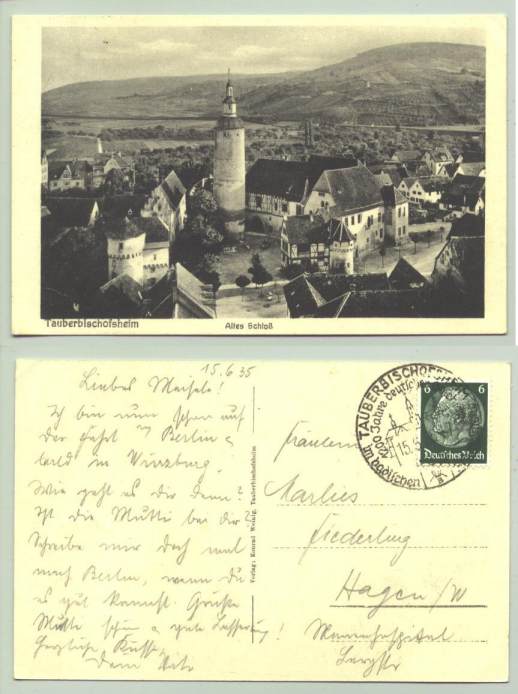 Tauberbischofsheim
Altes Schloß
15.6.35
Liebes Meisele!
Ich bin nun schon auf
der Fahrt n. Berlin &
bald in Würzburg.
Wie geht es dir denn?
Ist die Mutti bei dir?
Schreibe mir doch mal
nach Berlin, wenn du
es gut kannst. Grüße
Mutti schön & gute Besserung!
Herzliche Küsse
Dein
Verlag: Konrad Weinig, Tauberbischofsheim
TAUBERBISCHOFSHEIM
Jahre deutsche
im badischen
15.
6 6
Deutsches Reich
Fräulein
Marlies
Hagen i/W